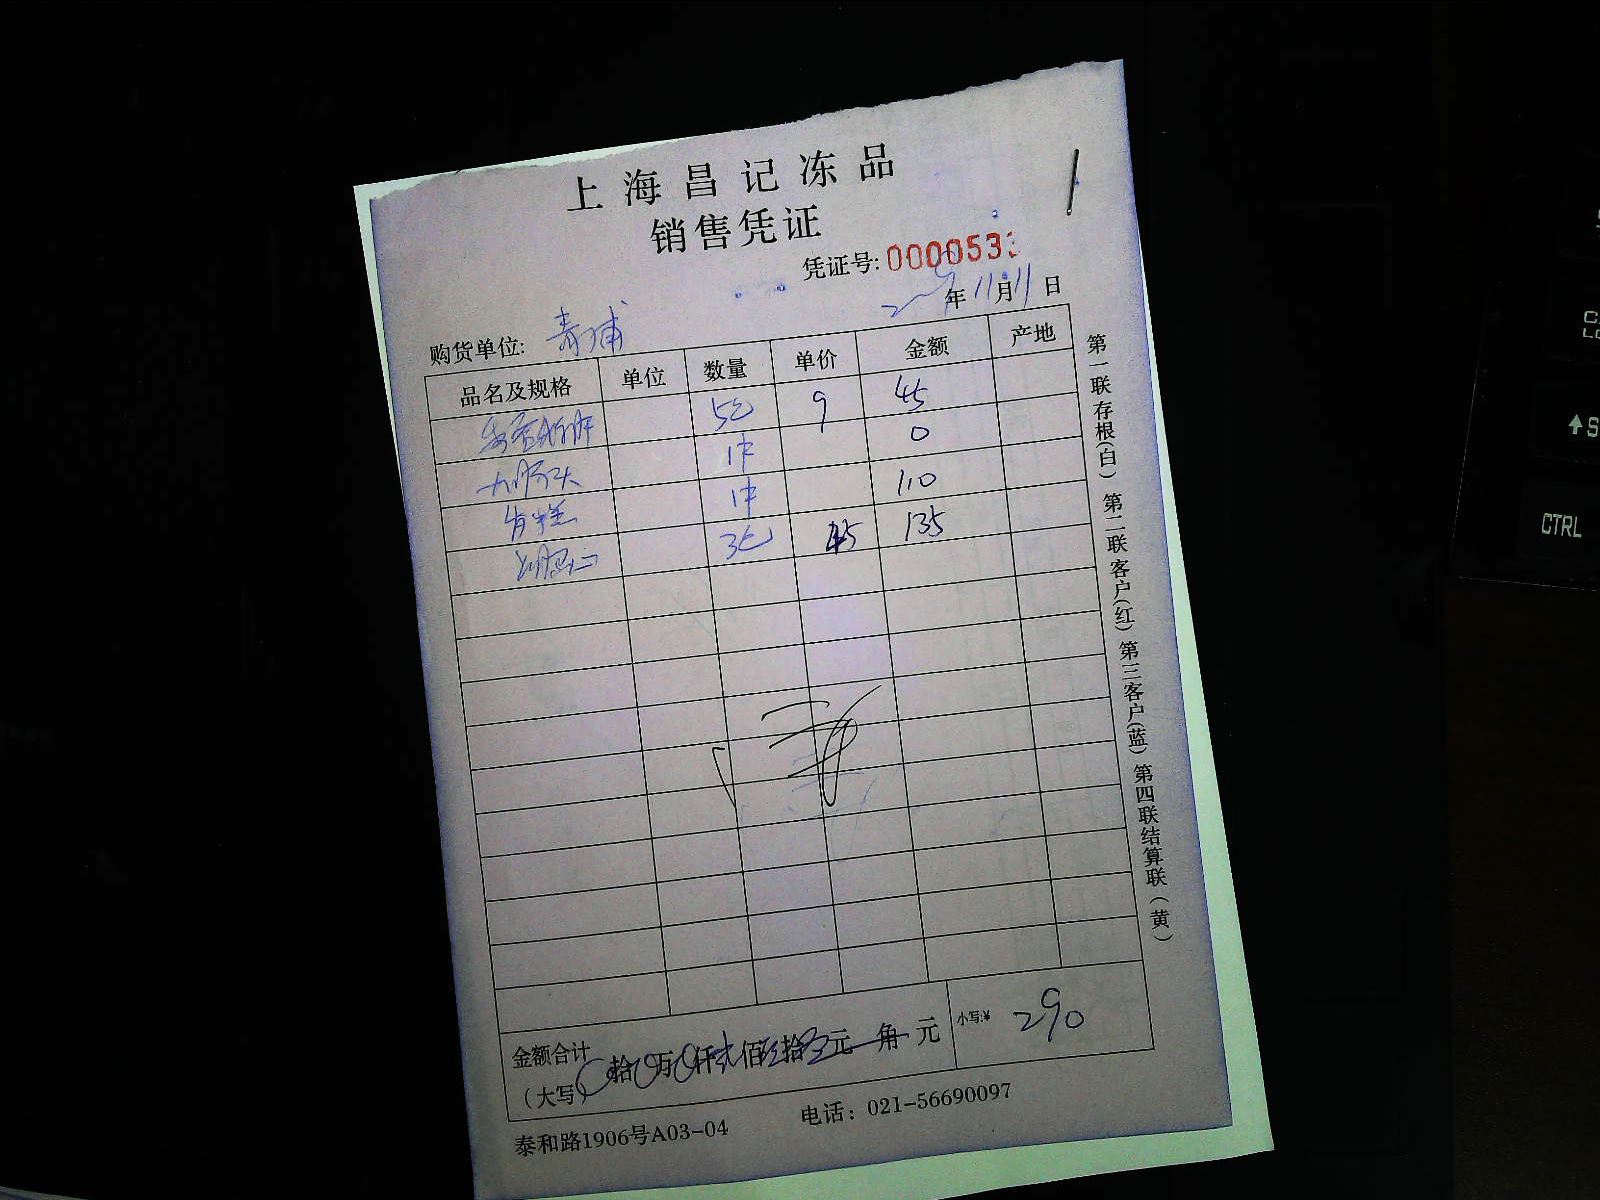 上海昌记冻品
销售凭证
凭证号: 0000533
年 11 月 11 日
购货单位: 青浦
品名及规格 单位 数量 单价 金额 产地
5 9 45
1件 0
1件 110
3 45 135
金额合计 (大写) 0 拾 0 万 0 仟 贰 佰 拾 元 角 元 小写:¥ 290
泰和路1906号A03-04 电话: 021-56690097
第一联存根(白) 第二联客户(红) 第三客户(蓝) 第四联结算联(黄)
CTRL